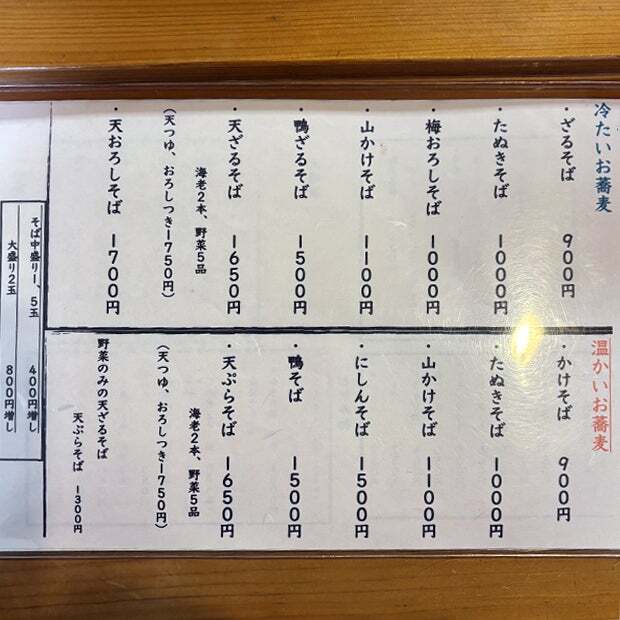 冷たいお蕎麦
・ざるそば 900円
・たぬきそば 1000円
・梅おろしそば 1000円
・山かけそば 1100円
・鴨ざるそば 1500円
・天ざるそば 1650円
海老2本、野菜5品
（天つゆ、おろしつき1750円）
・天おろしそば 1700円
温かいお蕎麦
・かけそば 900円
・たぬきそば 1000円
・山かけそば 1100円
・にしんそば 1500円
・鴨そば 1500円
・天ぷらそば 1650円
海老2本、野菜5品
（天つゆ、おろしつき1750円）
野菜のみの天ざるそば
天ぷらそば 1300円
そば中盛り1、5玉 400円増し
大盛り2玉 800円増し